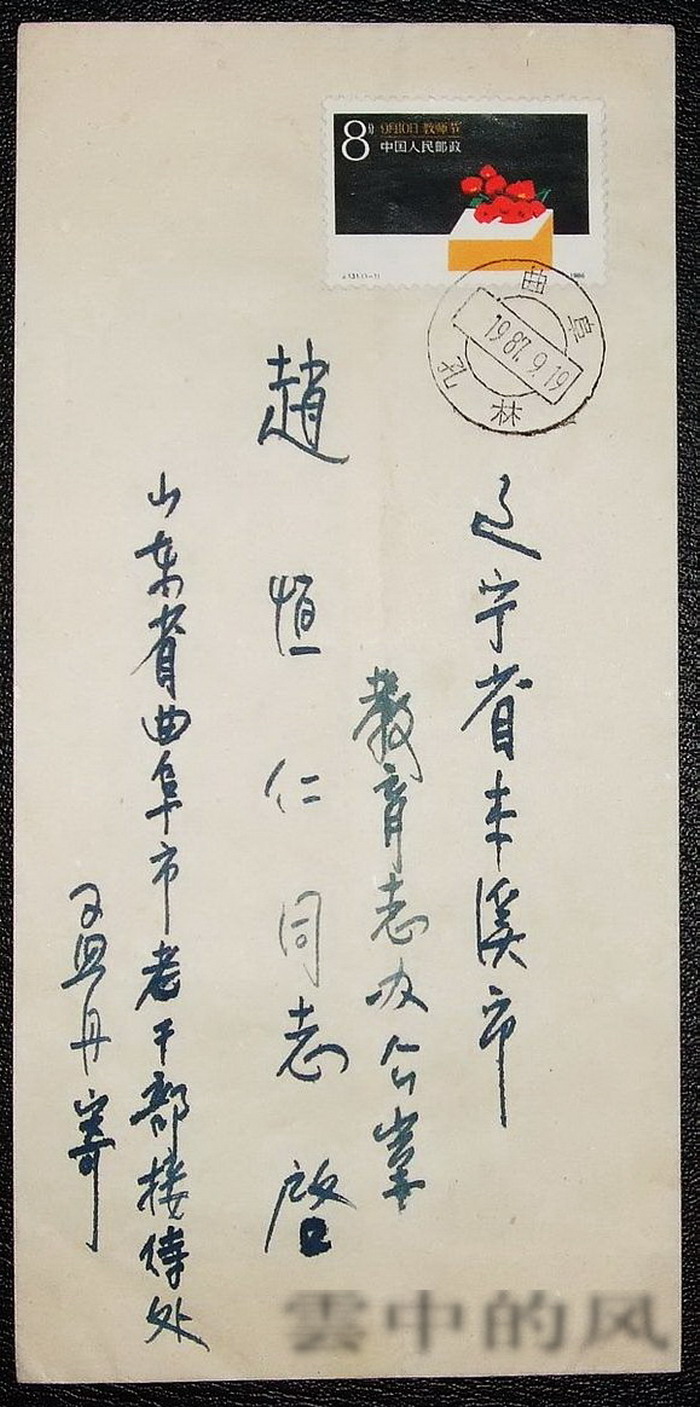 8分
9月10日 教师节
中国人民邮政
1986
曲阜
孔林
1987.6.19
辽宁省本溪市
教育志办公室
趙恒仁同志 啓
山东省曲阜市老干部接待处
丹寄
雲中的风